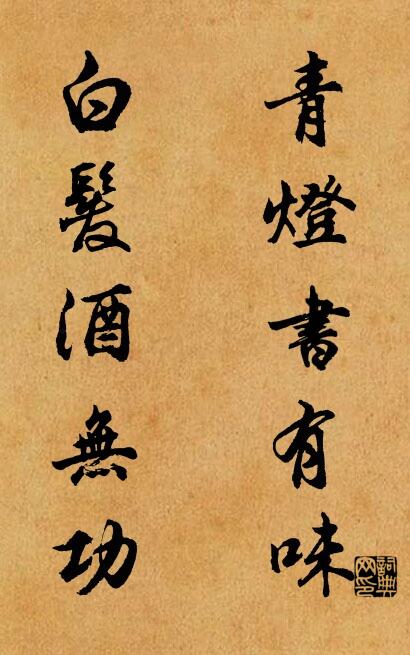 青燈書有味
白髮酒無功
詞典網印